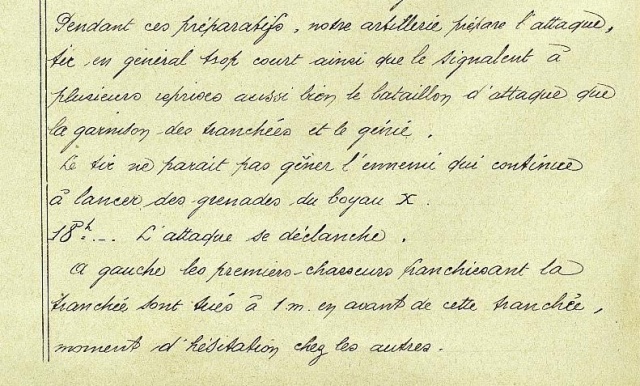 Pendant ces préparatifs, notre artillerie prépare l'attaque,
tir en général trop court ainsi que le signalent à
plusieurs reprises aussi bien le bataillon d'attaque que
la garnison des tranchées et le génie.
Le tir ne parait pas gêner l'ennemi qui continue
à lancer des grenades du boyau X.
18h... L'attaque se déclanche.
A gauche les premiers chasseurs franchissant la
tranchée sont tués à 1 m. en avant de cette tranchée,
moment d'hésitation chez les autres.